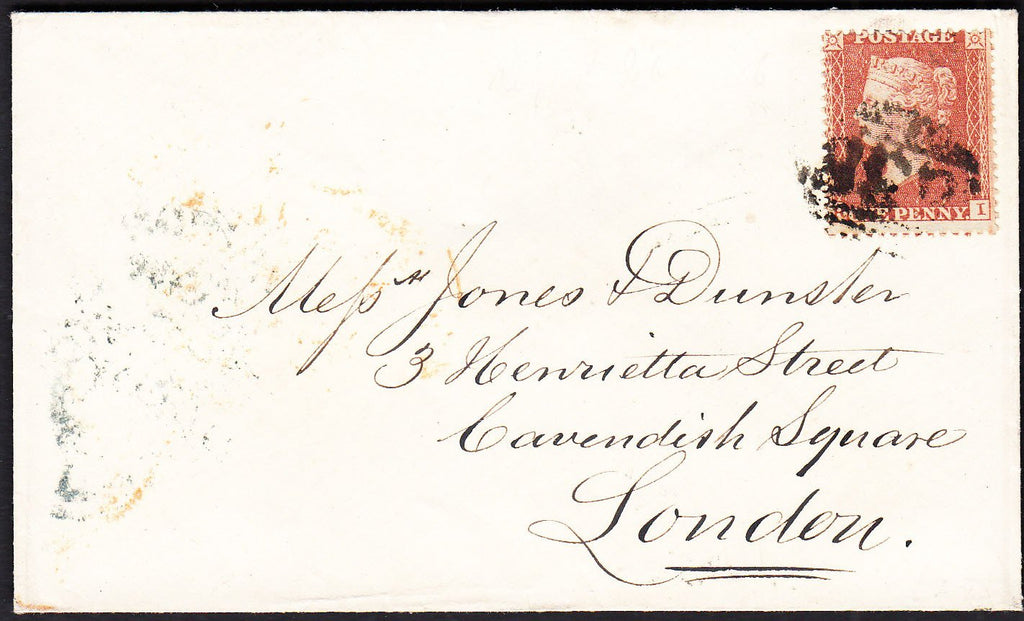 POSTAGE
PENNY. I
Messrs Jones & Dunster
3 Henrietta Street
Cavendish Square
London.